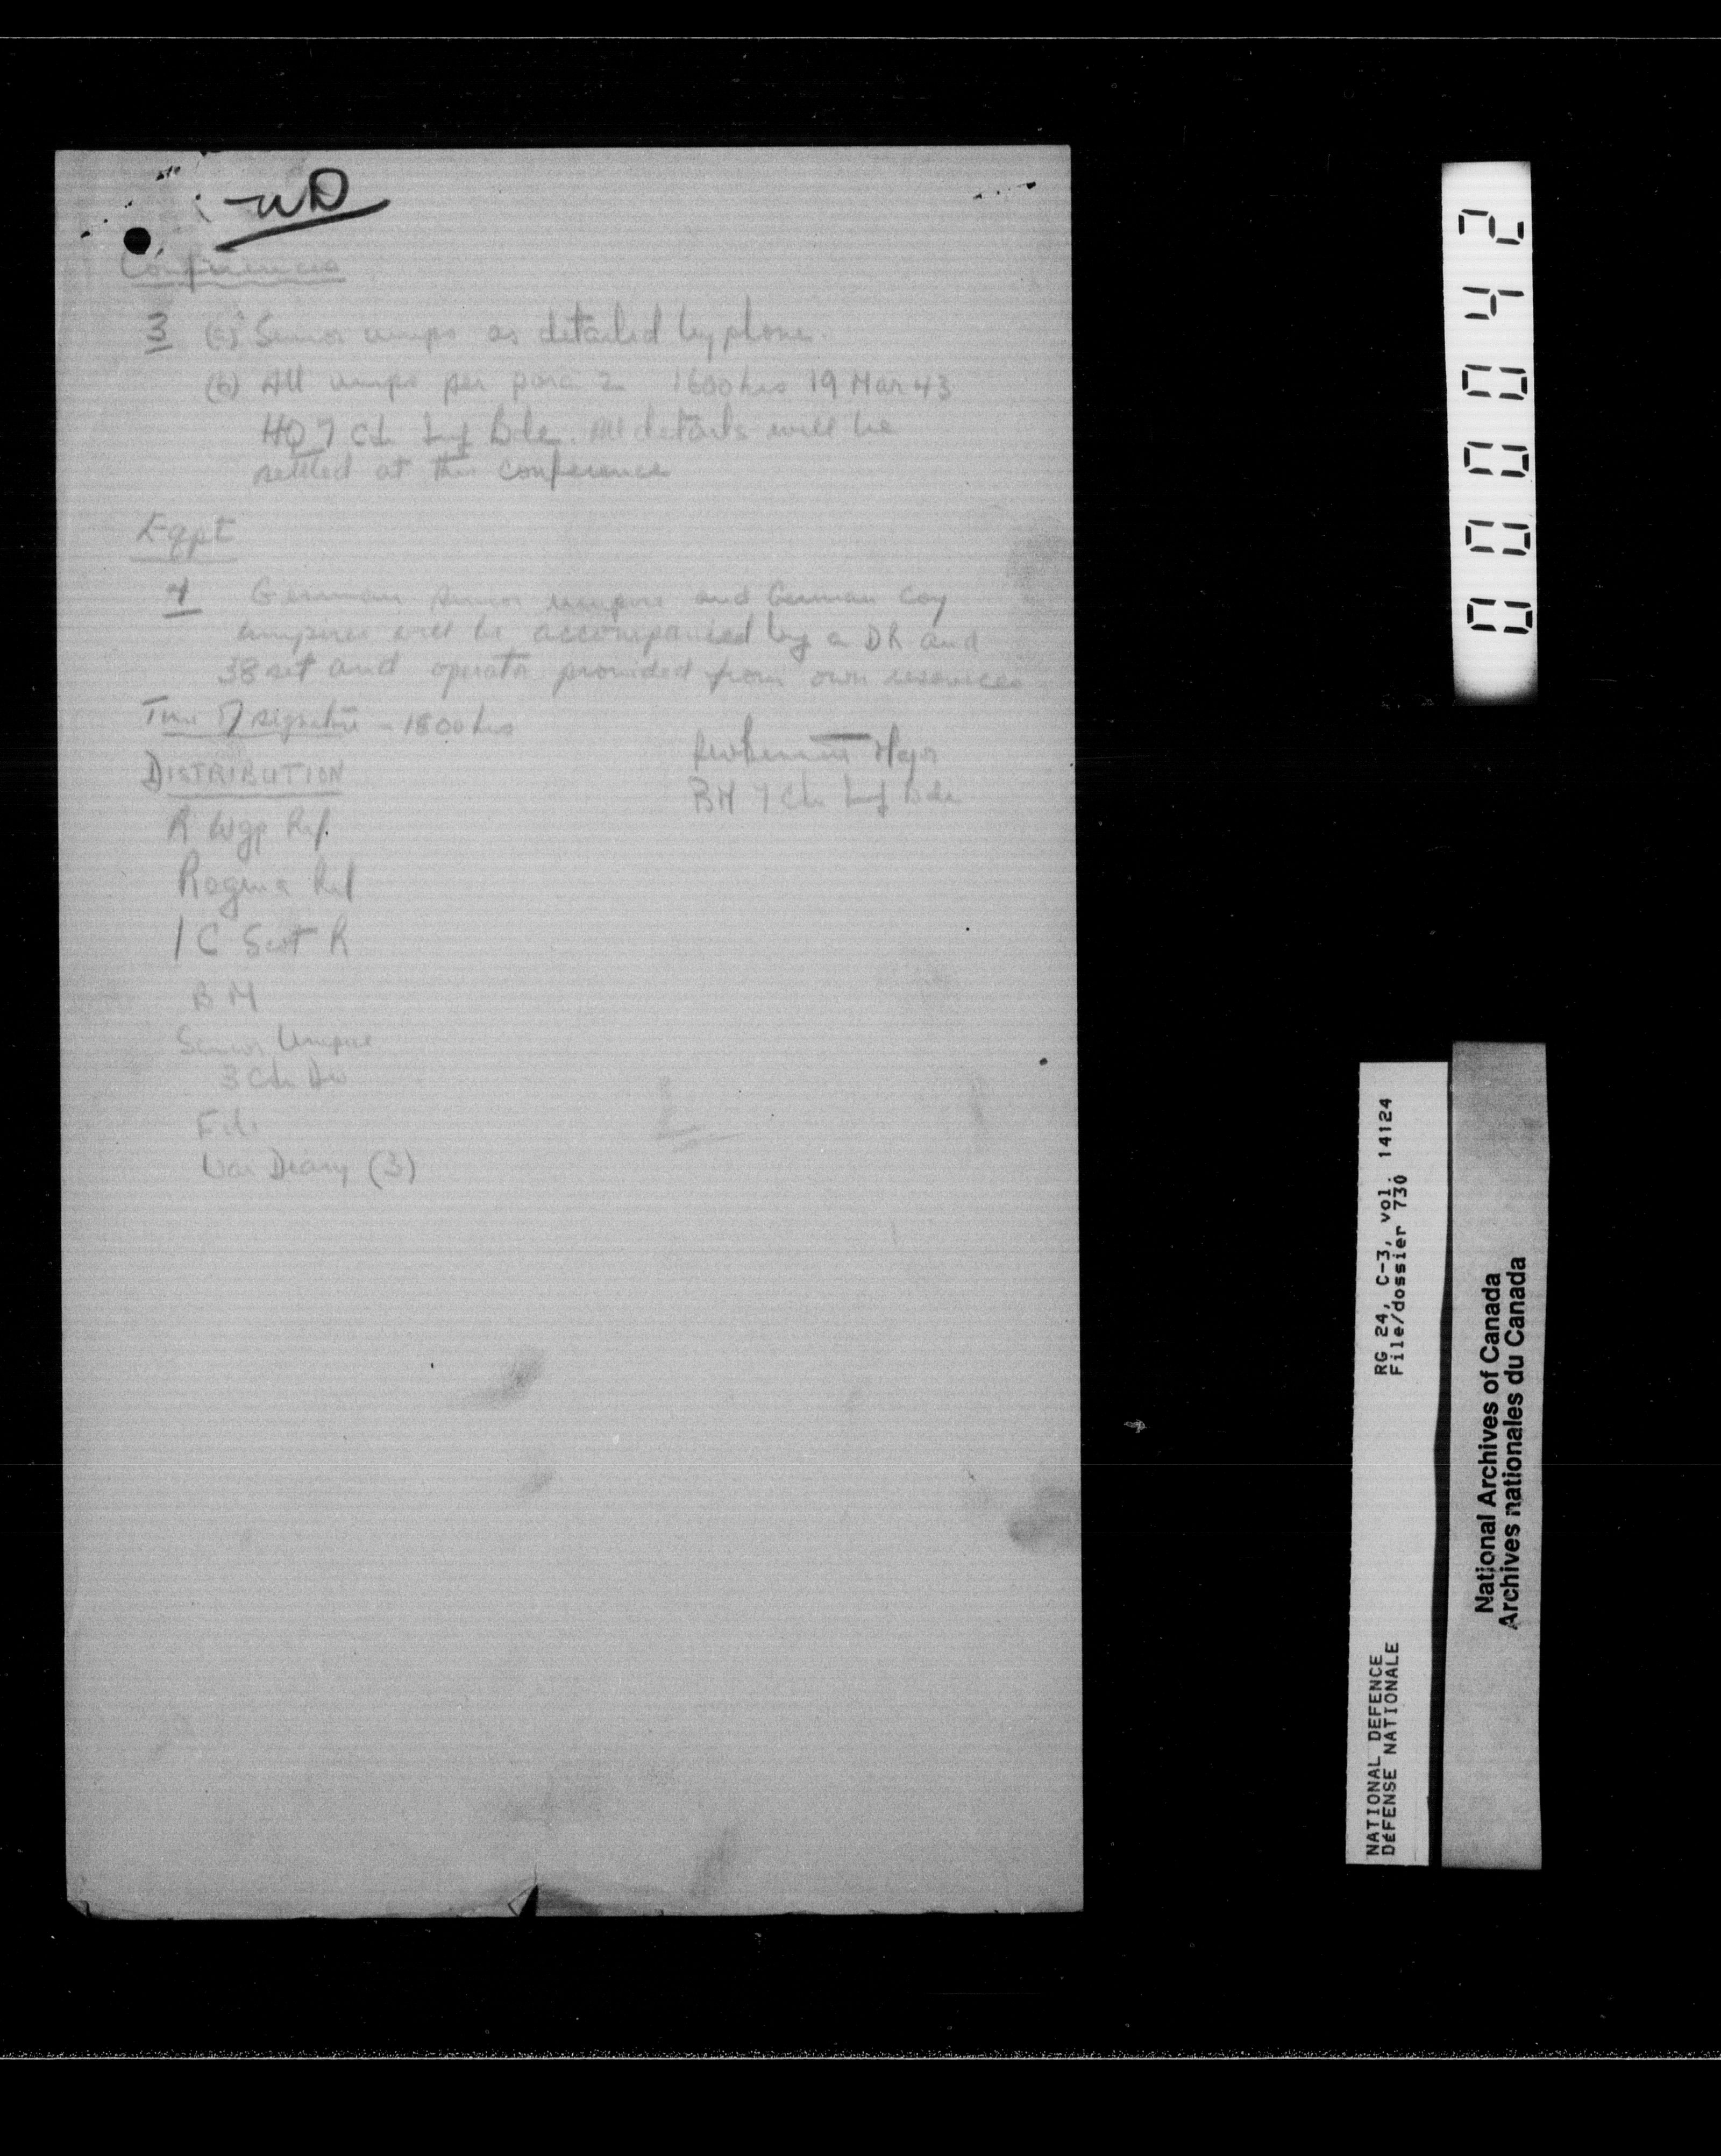 WD
Conferences
3 (a) Senior umps as detailed by phone.
(b) All umps per para 2 1600 hrs 19 Mar 43
HQ 7 Cdn Inf Bde. All details will be
settled at this conference
Eqpt
4 German senior umpire and German coy
umpires will be accompanied by a DR and
38 set and operator provided from own resources
Time of signature - 1800 hrs
Major
BM 7 Cdn Inf Bde
DISTRIBUTION
R Wpg Rif
Regina Rif
1 C Scot R
BM
Senior Umpire
3 Cdn Div
File
War Diary (3)
000042
RG 24, C-3, vol. 14124
File/dossier 730
NATIONAL DEFENCE
DÉFENSE NATIONALE
National Archives of Canada
Archives nationales du Canada